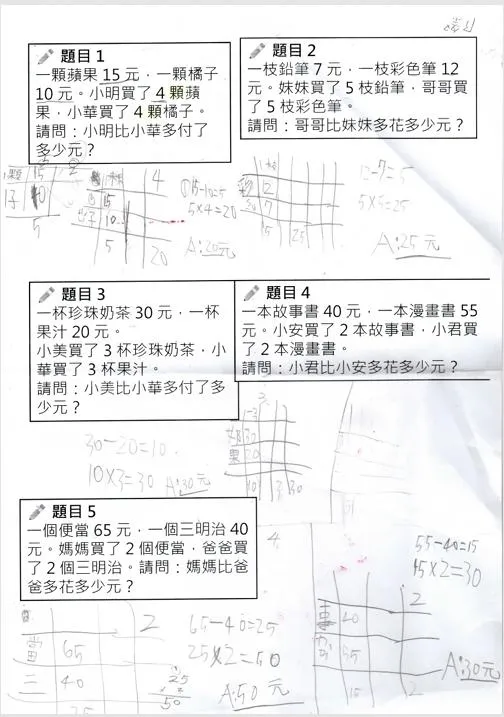 題目 1
一顆蘋果 15 元，一顆橘子
10 元。小明買了 4 顆蘋
果，小華買了 4 顆橘子。
請問：小明比小華多付了
多少元？
1顆
15
4
15
10
5
20
15-10=5
5×4=20
A:20元
題目 2
一枝鉛筆 7 元，一枝彩色筆 12
元。妹妹買了 5 枝鉛筆，哥哥買
了 5 枝彩色筆。
請問：哥哥比妹妹多花多少元？
12
7
12-7=5
5×5=25
A:25元
題目 3
一杯珍珠奶茶 30 元，一杯
果汁 20 元。
小美買了 3 杯珍珠奶茶，小
華買了 3 杯果汁。
請問：小美比小華多付了多
少元？
30-20=10
10×3=30
A:30元
奶 30
果 20
10
30
題目 4
一本故事書 40 元，一本漫畫書 55
元。小安買了 2 本故事書，小君買
了 2 本漫畫書。
請問：小君比小安多花多少元？
4
55-40=15
15×2=30
2
40
55
15
2
A:30元
題目 5
一個便當 65 元，一個三明治 40
元。媽媽買了 2 個便當，爸爸買
了 2 個三明治。請問：媽媽比爸
爸多花多少元？
2
當 65
三 40
25
65-40=25
25×2=50
25
× 2
50
A:50元